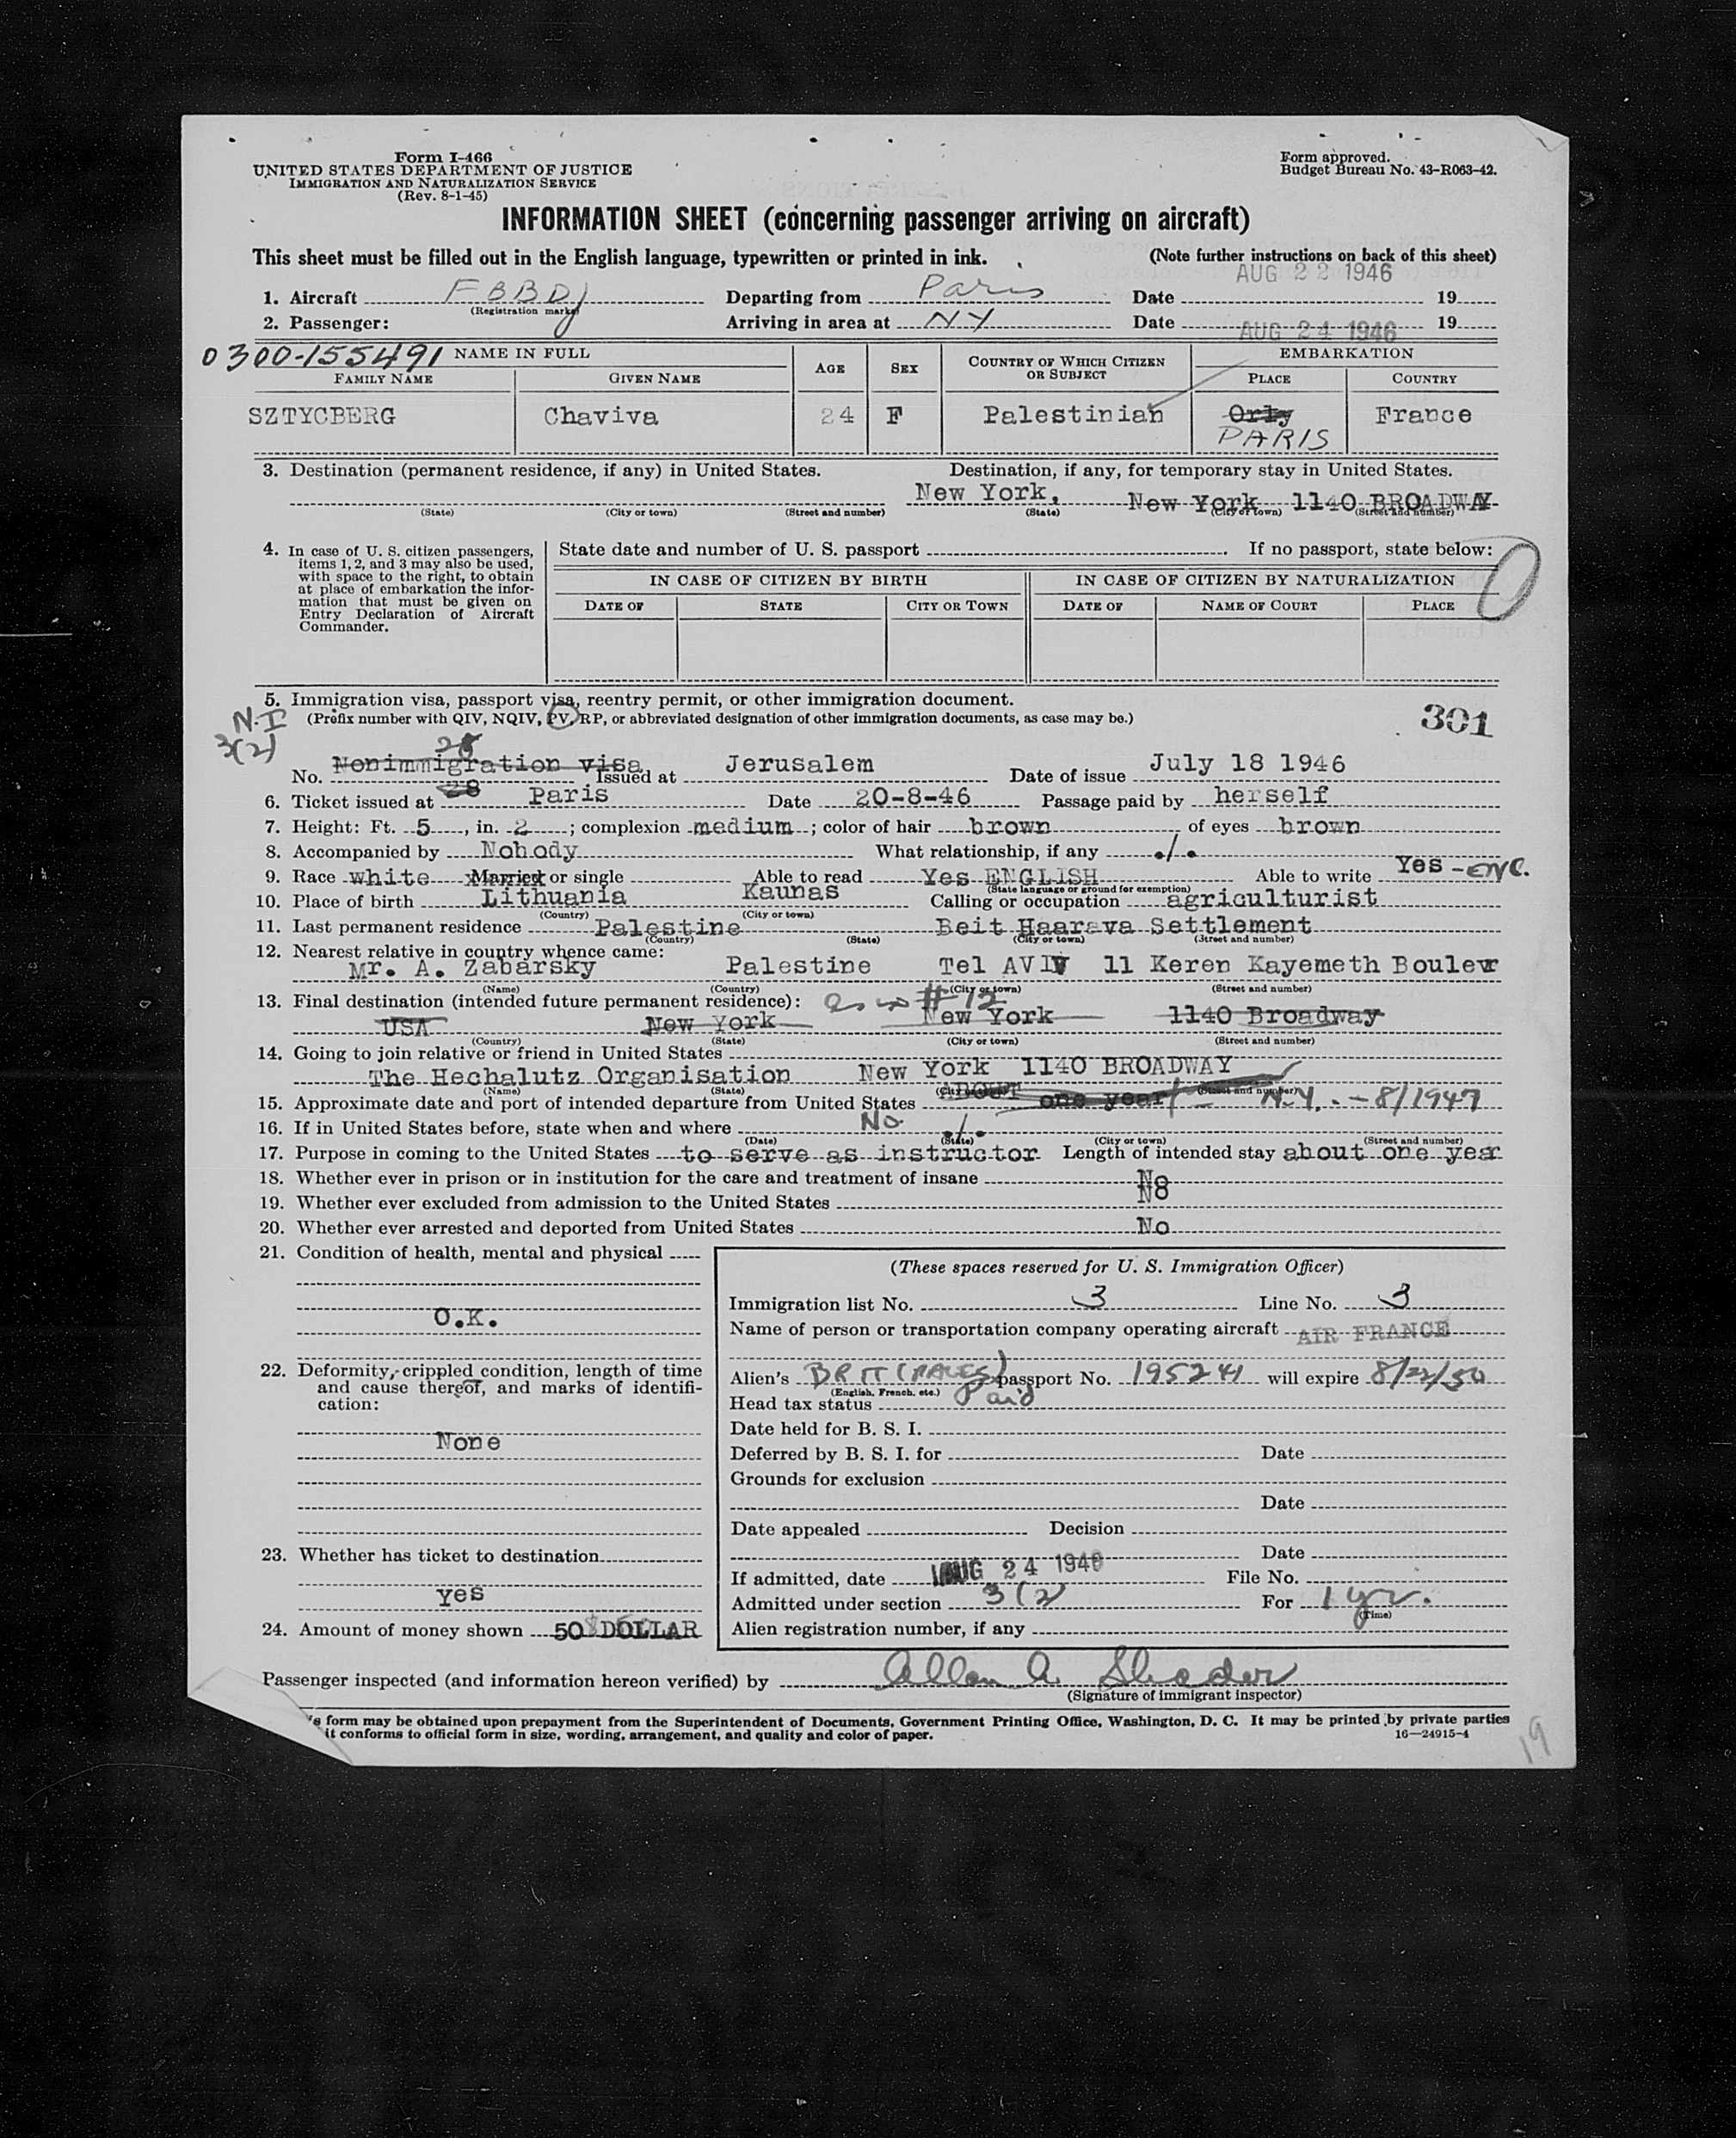 Form I-466
UNITED STATES DEPARTMENT OF JUSTICE
IMMIGRATION AND NATURALIZATION SERVICE
(Rev. 8-1-45)
Form approved.
Budget Bureau No. 43-R063-42.
INFORMATION SHEET (concerning passenger arriving on aircraft)
This sheet must be filled out in the English language, typewritten or printed in ink. (Note further instructions on back of this sheet)
AUG 22 1946
1. Aircraft FBBDJ Departing from Paris Date 19
(Registration marks)
2. Passenger: Arriving in area at NY Date AUG 24 1946 19
0300-155491 NAME IN FULL AGE SEX COUNTRY OF WHICH CITIZEN OR SUBJECT EMBARKATION
FAMILY NAME GIVEN NAME PLACE COUNTRY
SZTYCBERG Chaviva 24 F Palestinian Orly France
PARIS
3. Destination (permanent residence, if any) in United States. Destination, if any, for temporary stay in United States.
New York, New York 1140 BROADWAY
(State) (City or town) (Street and number) (State) (City or town) (Street and number)
4. In case of U. S. citizen passengers, items 1, 2, and 3 may also be used, with space to the right, to obtain at place of embarkation the information that must be given on Entry Declaration of Aircraft Commander.
State date and number of U. S. passport If no passport, state below:
IN CASE OF CITIZEN BY BIRTH IN CASE OF CITIZEN BY NATURALIZATION
DATE OF STATE CITY OR TOWN DATE OF NAME OF COURT PLACE
5. Immigration visa, passport visa, reentry permit, or other immigration document.
(Prefix number with QIV, NQIV, PV, RP, or abbreviated designation of other immigration documents, as case may be.)
301
N.I
3(2)
28
No. Nonimmigration visa Issued at Jerusalem Date of issue July 18 1946
28
6. Ticket issued at Paris Date 20-8-46 Passage paid by herself
7. Height: Ft. 5, in. 2; complexion medium; color of hair brown of eyes brown
8. Accompanied by Nobody What relationship, if any ./.
9. Race white Married or single Able to read Yes ENGLISH Able to write Yes - ENG.
(State language or ground for exemption)
10. Place of birth Lithuania Kaunas Calling or occupation agriculturist
(Country) (City or town)
11. Last permanent residence Palestine Beit Haarava Settlement
(Country) (State) (City or town) (Street and number)
12. Nearest relative in country whence came:
Mr. A. Zabarsky Palestine Tel AVIV 11 Keren Kayemeth Boulevr
(Name) (Country) (City or town) (Street and number)
13. Final destination (intended future permanent residence): # 12
USA New York New York 1140 Broadway
(Country) (State) (City or town) (Street and number)
14. Going to join relative or friend in United States
The Hechalutz Organisation New York 1140 BROADWAY
(Name) (State) (City or town) (Street and number)
15. Approximate date and port of intended departure from United States ABOUT one year N.Y. - 8/1947
16. If in United States before, state when and where No ./.
(Date) (State) (City or town) (Street and number)
17. Purpose in coming to the United States to serve as instructor Length of intended stay about one year
18. Whether ever in prison or in institution for the care and treatment of insane No
19. Whether ever excluded from admission to the United States No
20. Whether ever arrested and deported from United States No
21. Condition of health, mental and physical
O.K.
22. Deformity, crippled condition, length of time and cause thereof, and marks of identification:
None
23. Whether has ticket to destination
yes
24. Amount of money shown 50 DOLLAR
(These spaces reserved for U. S. Immigration Officer)
Immigration list No. 3 Line No. 3
Name of person or transportation company operating aircraft AIR FRANCE
Alien's BRIT (PALES) passport No. 195241 will expire 8/22/50
(English, French, etc.)
Head tax status Paid
Date held for B. S. I.
Deferred by B. S. I. for Date
Grounds for exclusion
Date
Date appealed Decision
Date
If admitted, date AUG 24 1946 File No.
Admitted under section 3(2) For 1 yr.
(Time)
Alien registration number, if any
Passenger inspected (and information hereon verified) by Allen A. Shader
(Signature of immigrant inspector)
s form may be obtained upon prepayment from the Superintendent of Documents, Government Printing Office, Washington, D. C. It may be printed by private parties
it conforms to official form in size, wording, arrangement, and quality and color of paper. 16—24915-4
19